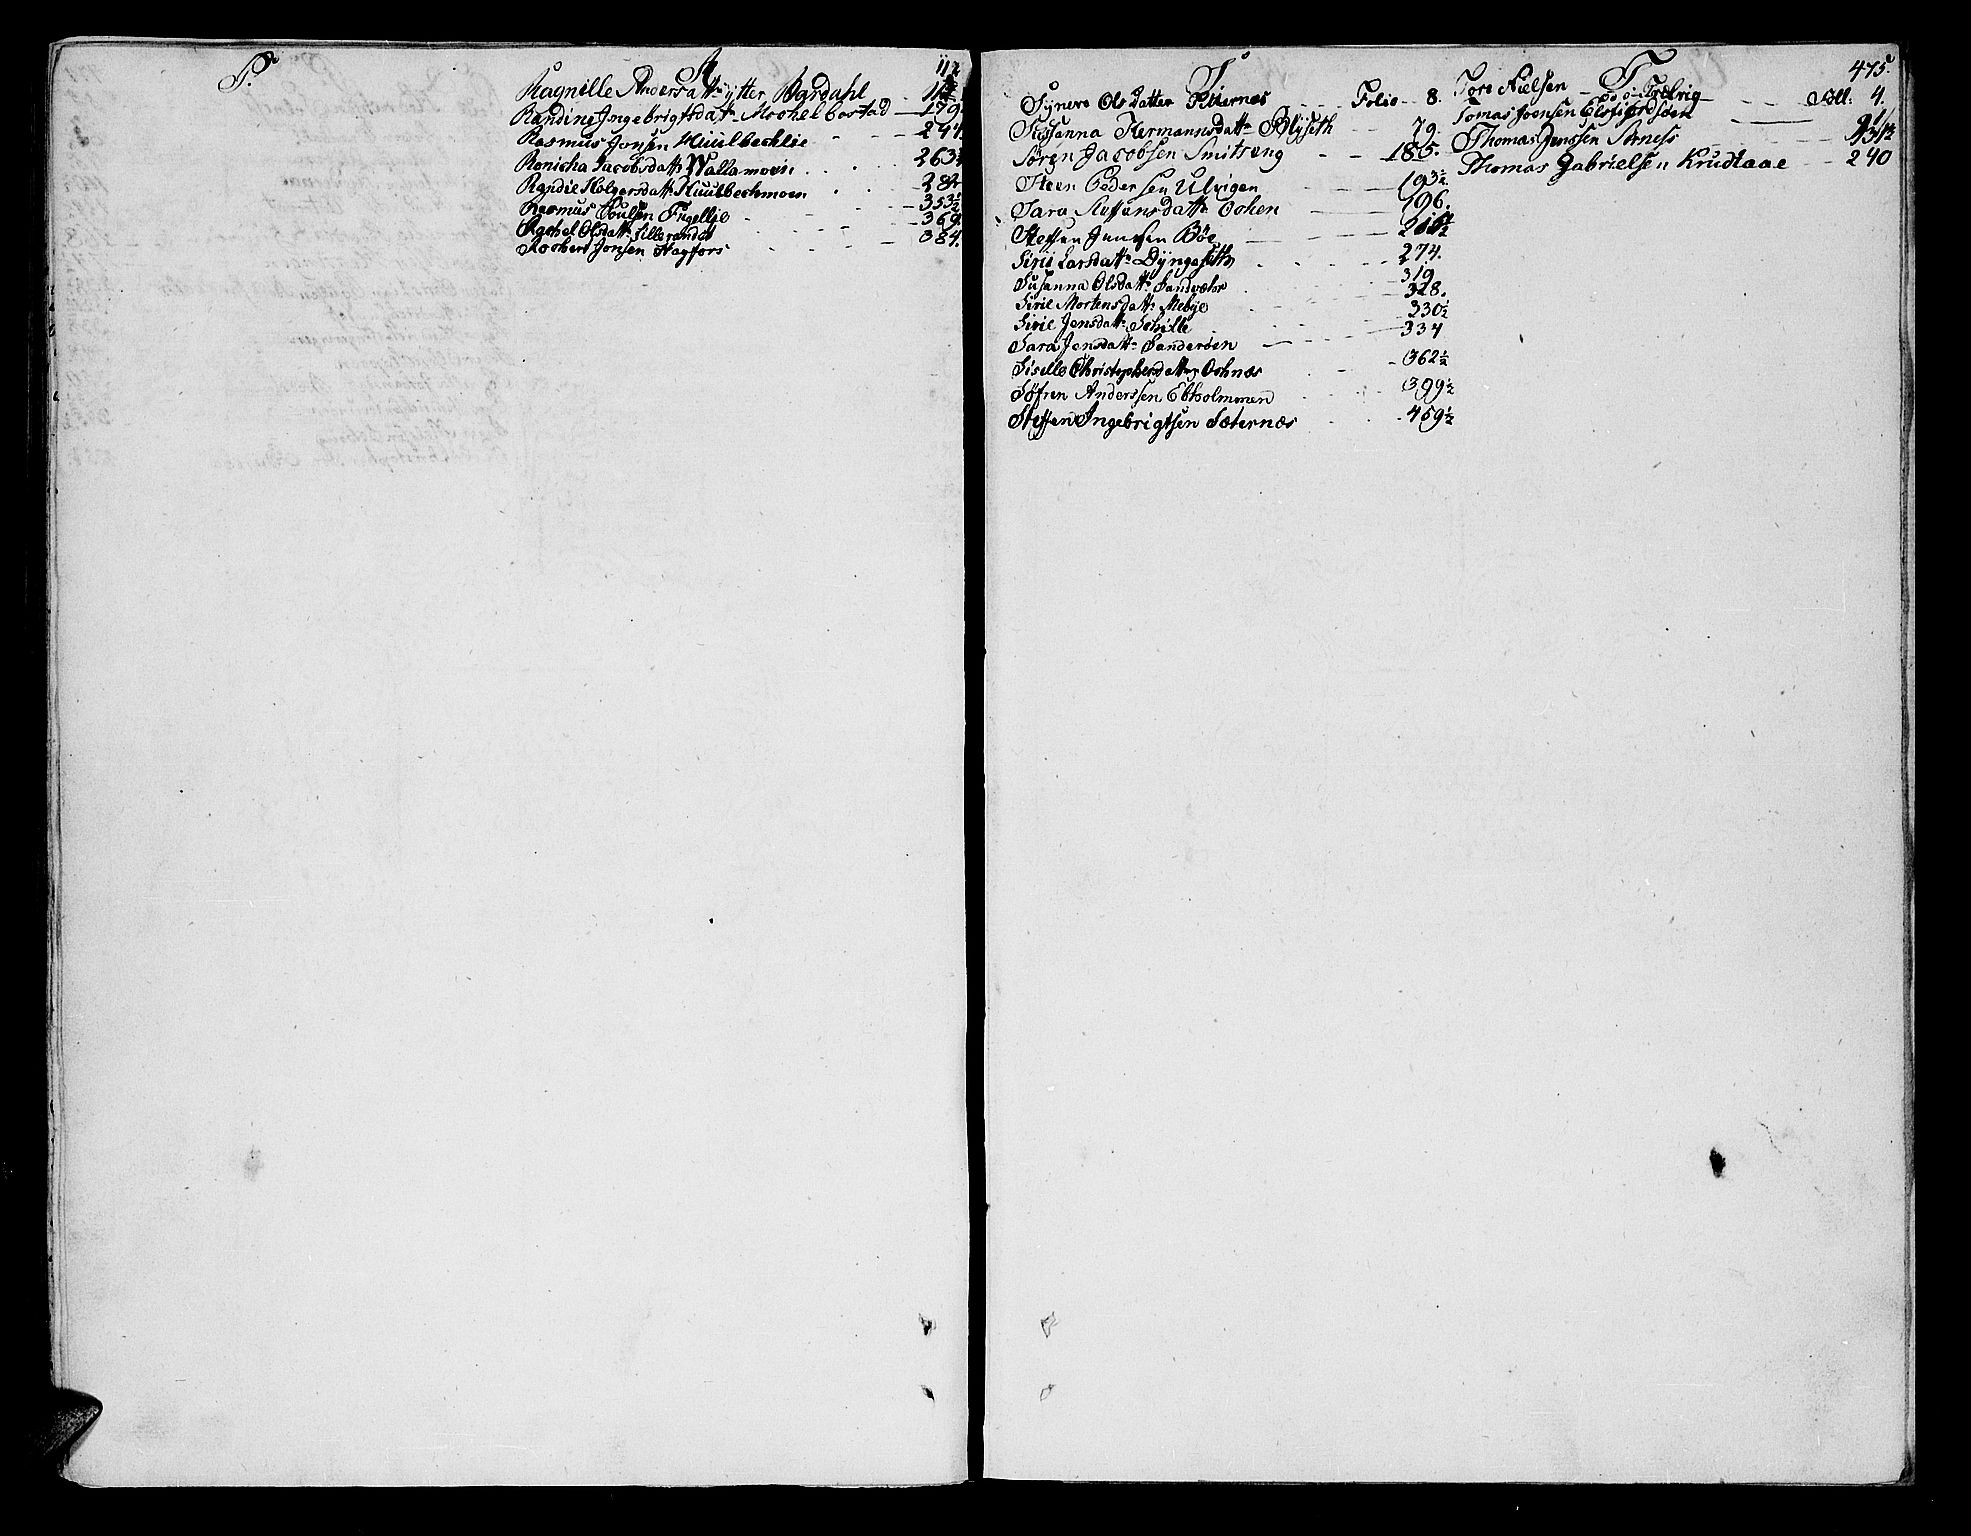 P.
R
Ragnille Andersdatt: ytter Bardahl
Randine Ingebrigtsdatt: Mochelbostad 179
Rasmus Jonsen Kuulbechlie 244
Ronicha Jacobsdatt: Wallamoen 263½
Randie Holgersdatt: Kuulbechmoen 282
Rasmus Poulsen Fugellie 353½
Rachel Olsdatt: Lillerandal 369
Rochert Jonsen Hagfors 384.
S
Synere Olsdatter Folio 8.
Susanna Hermannsdatt: Blyseth 79.
Søren Jacobsen Smitseng 185.
Steen Pedersen Ulvigen 193½
Sara Steffensdatt: Ochen 196.
Steffen Jensen Bøe
Sirii Larsdatt: Dyngeseth 274.
Susanna Olsdatt: Sandvær 319
Sirie Mortensdatt: Mebye 328.
Sirie Jonsdatt: 330½
Sara Jonsdatt: Sanderøen 334
Siselle Christophersdatter Ochnæs 362½
Søfren Anderssen Ebholmmen 399½
Steffen Ingebrigtsen Sæternæs 459½
475.
T
Tore Nielsen Foll: 4.
Tomas Joensen Elsfiordsøen 91
Thomas Jenssen Arness 131½
Thomas Gabrielsen Krudtaae 240